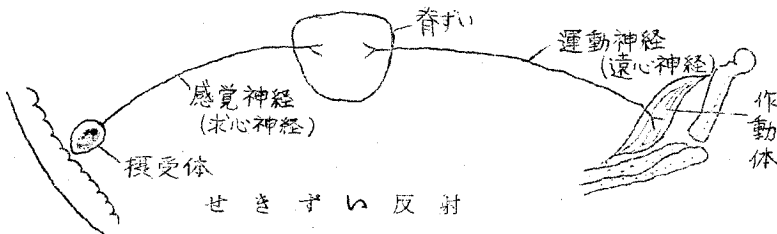 脊ずい
運動神経
(遠心神経)
感覚神経
(求心神経)
作動体
摂受体
せきずい反射